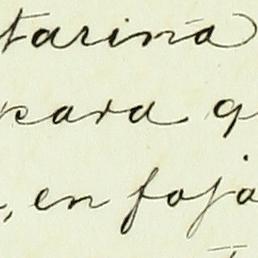 tarina
para q
, en foja